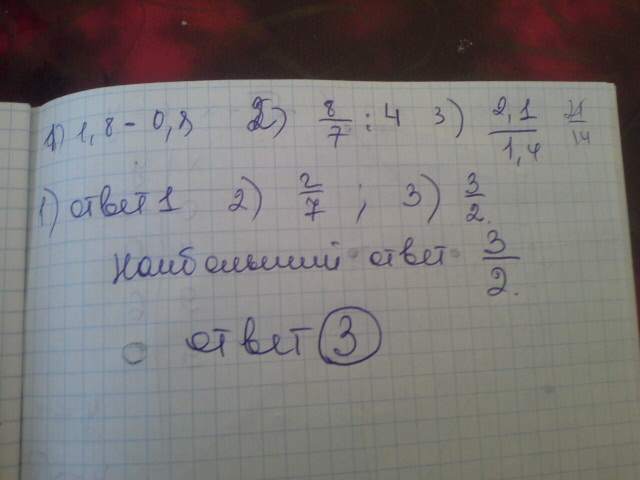 1) 1,8 - 0,8 2) 8/7 : 4 3) 2,1/1,4 21/14
1) ответ 1 2) 2/7 ; 3) 3/2.
Наибольший ответ 3/2.
ответ 3